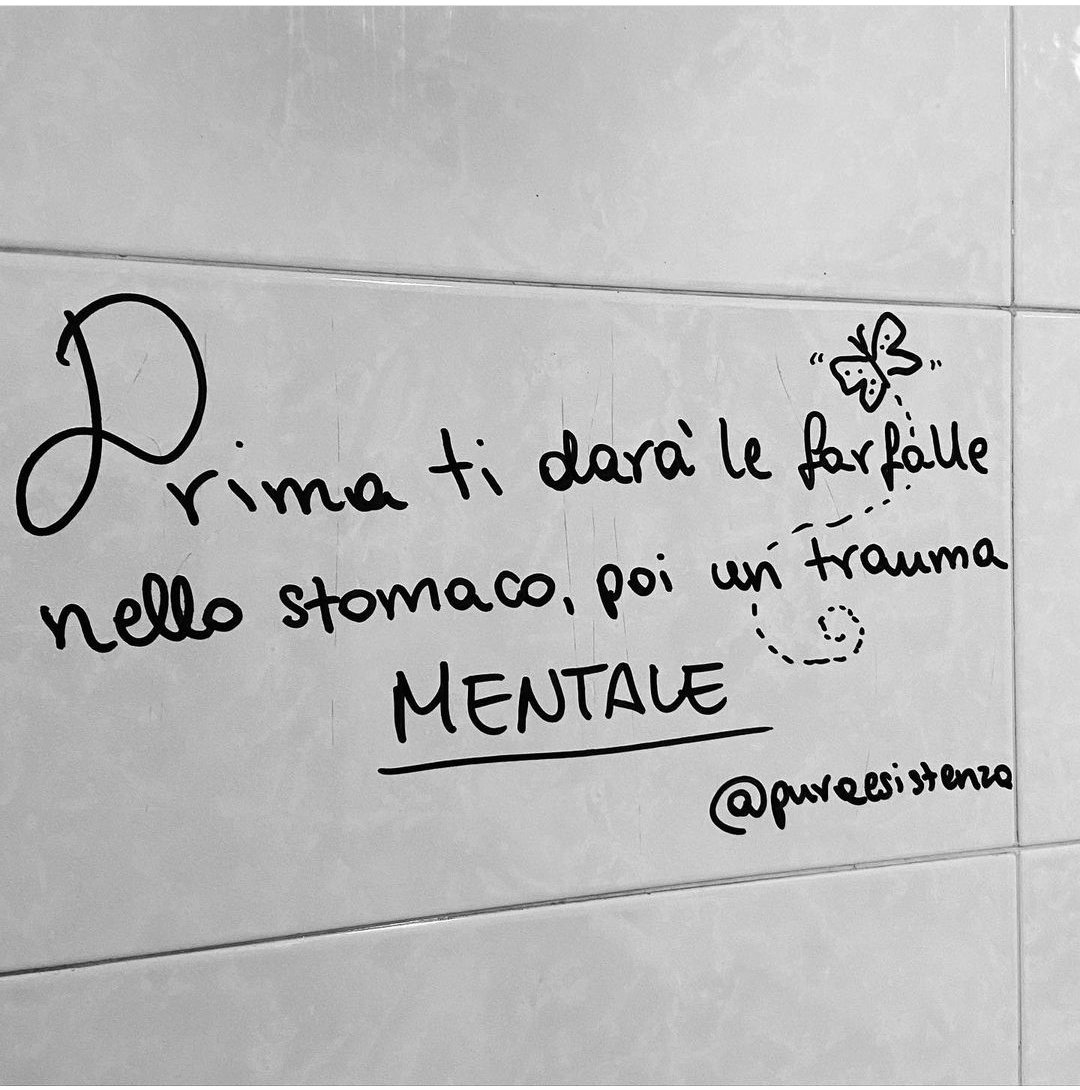 Prima ti darà le farfalle
nello stomaco, poi un trauma
MENTALE
@puraesistenza